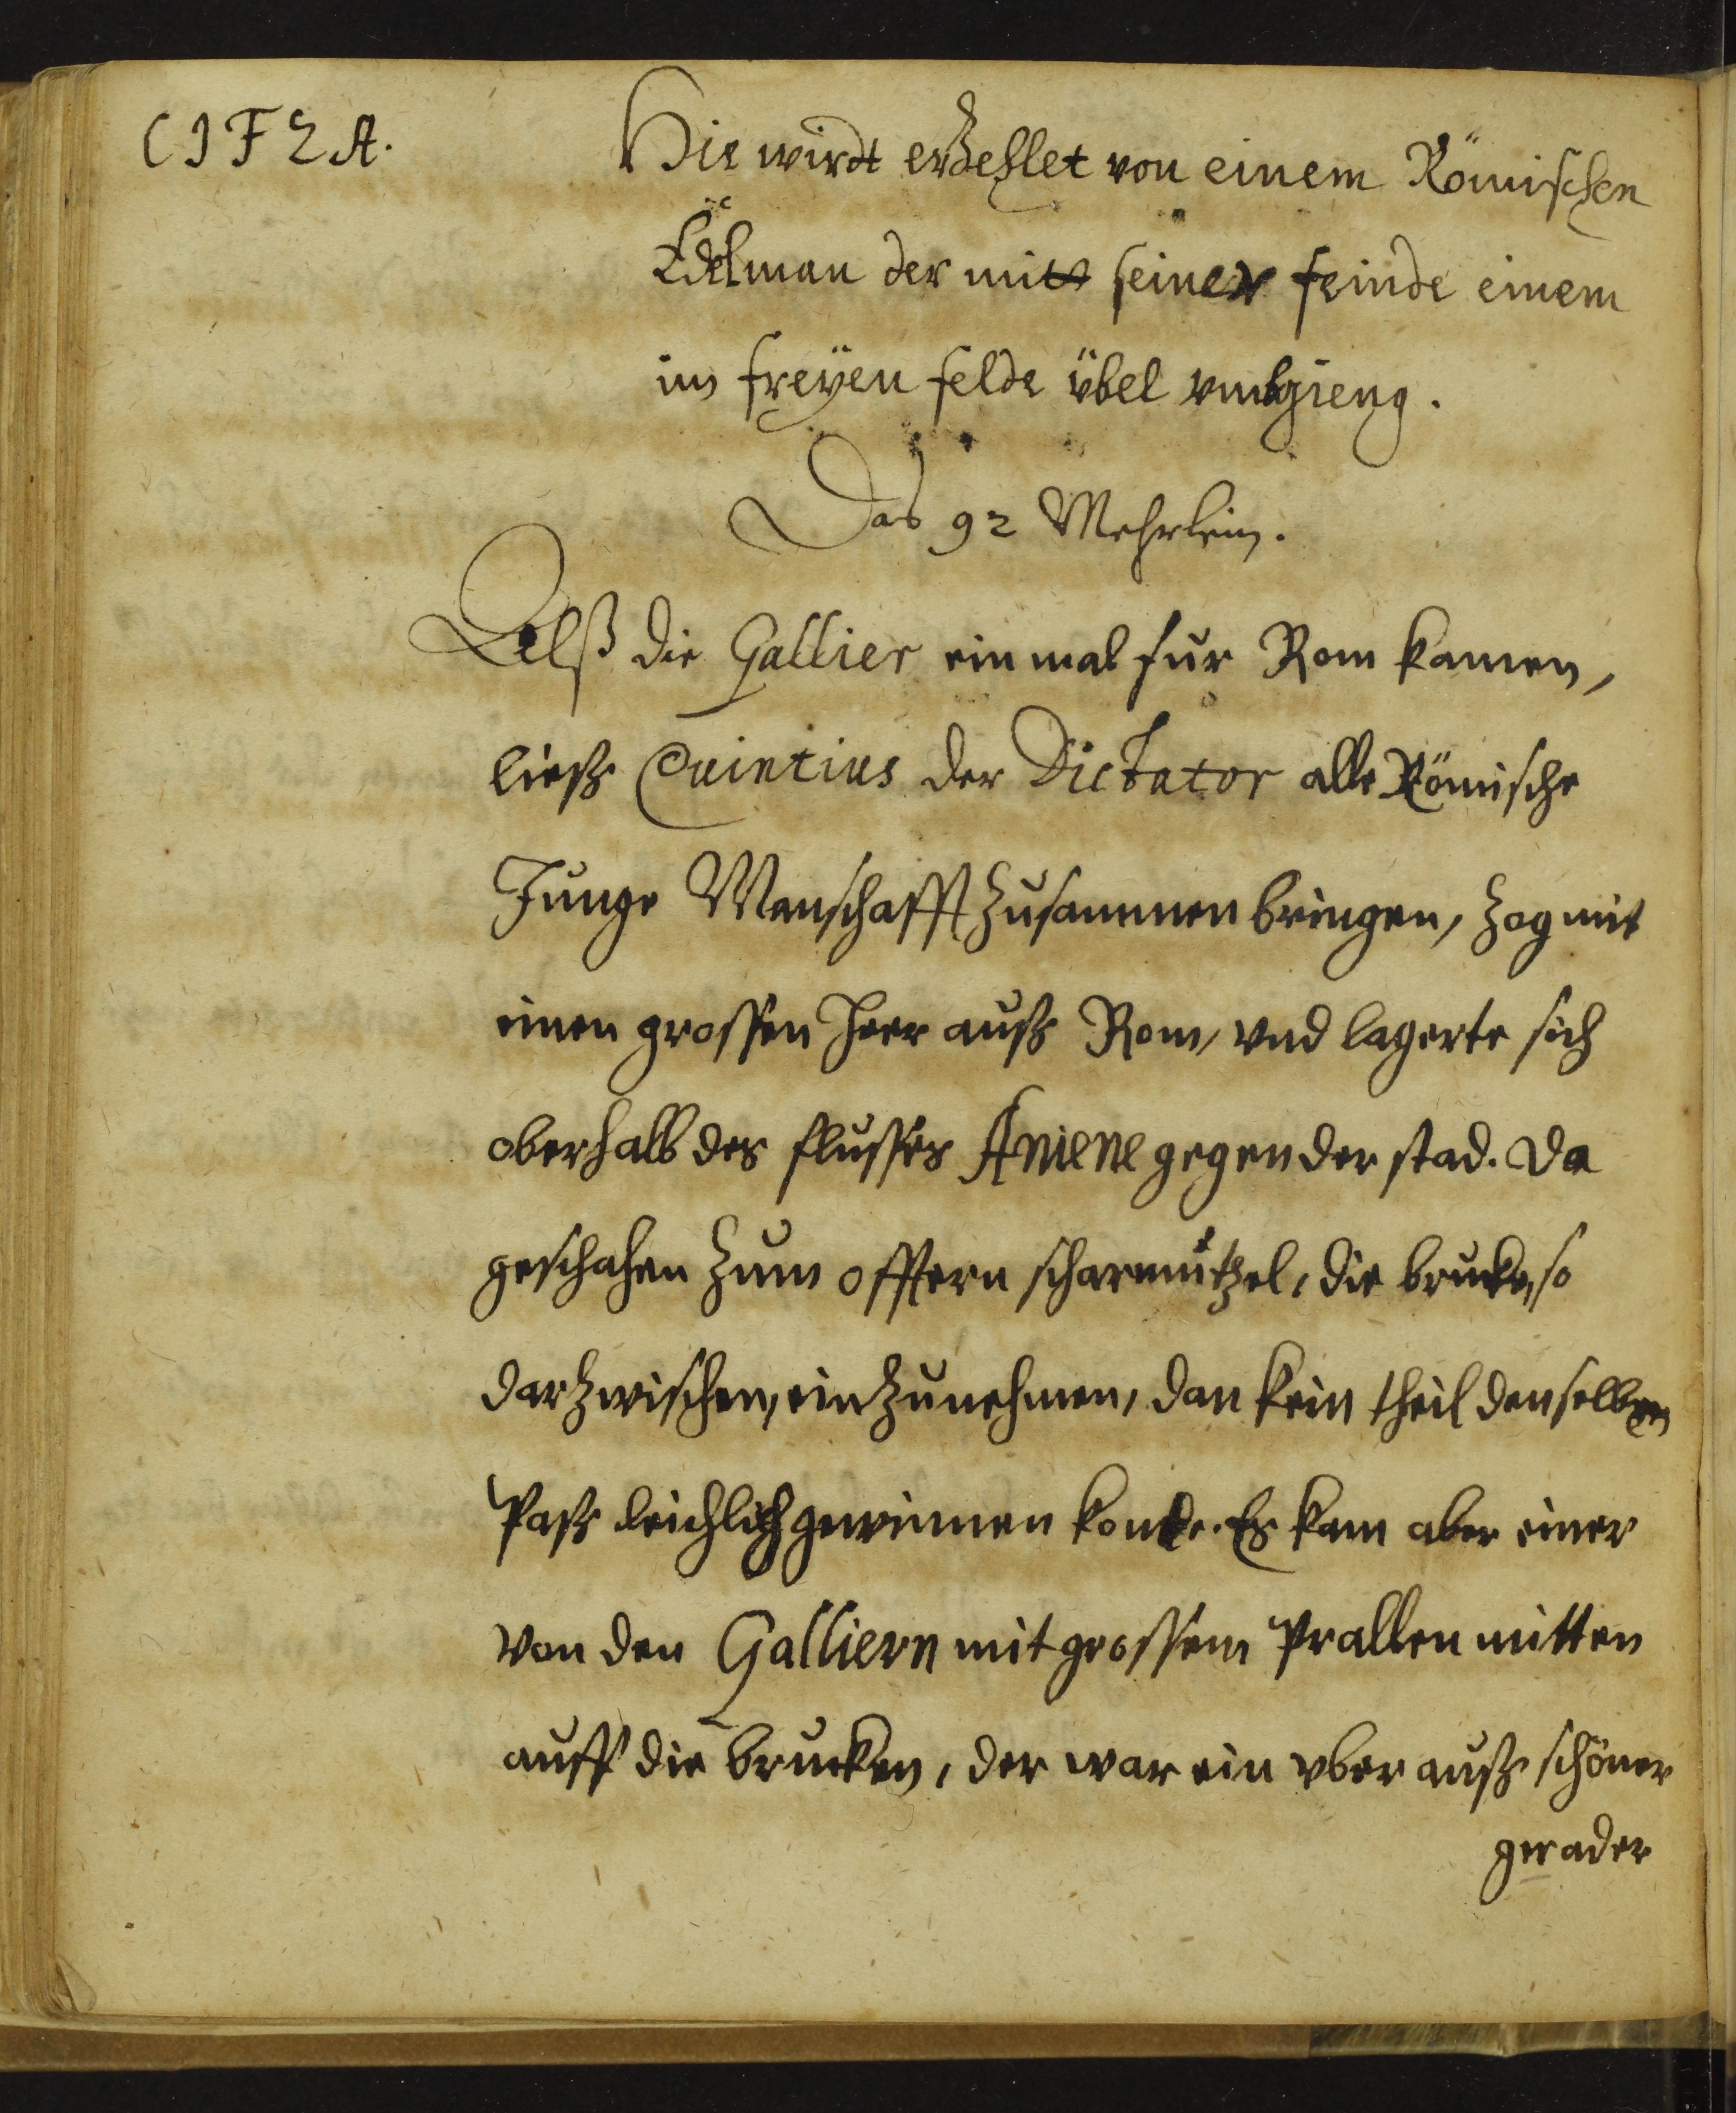 CIFZA.
Hie wirdt erzehlet von einem Römischen
Edelman der mitt seiner feinde einem
im freyen felde übel umbgieng.
Das 92 Mehrlein.
Alß die Gallier ein mal fur Rom kamen,
liess Quintius der Dictator alle Römische
Junge Manschafft zusammen bringen, zog mit
einen grossen heer auss Rom, vnd lagerte sich
oberhalb des flusses Aniene gegen der stad. Da
geschahen zum offtern scharmützel, die brucken, so
darzwischen, ein zunehmen, dan kein theil denselben
Pass leichlich gewinnen konde. Es kam aber einer
von den Galliern mit grossem Prallen mitten
auff die brucken, der war ein vber auss schöner
gerader